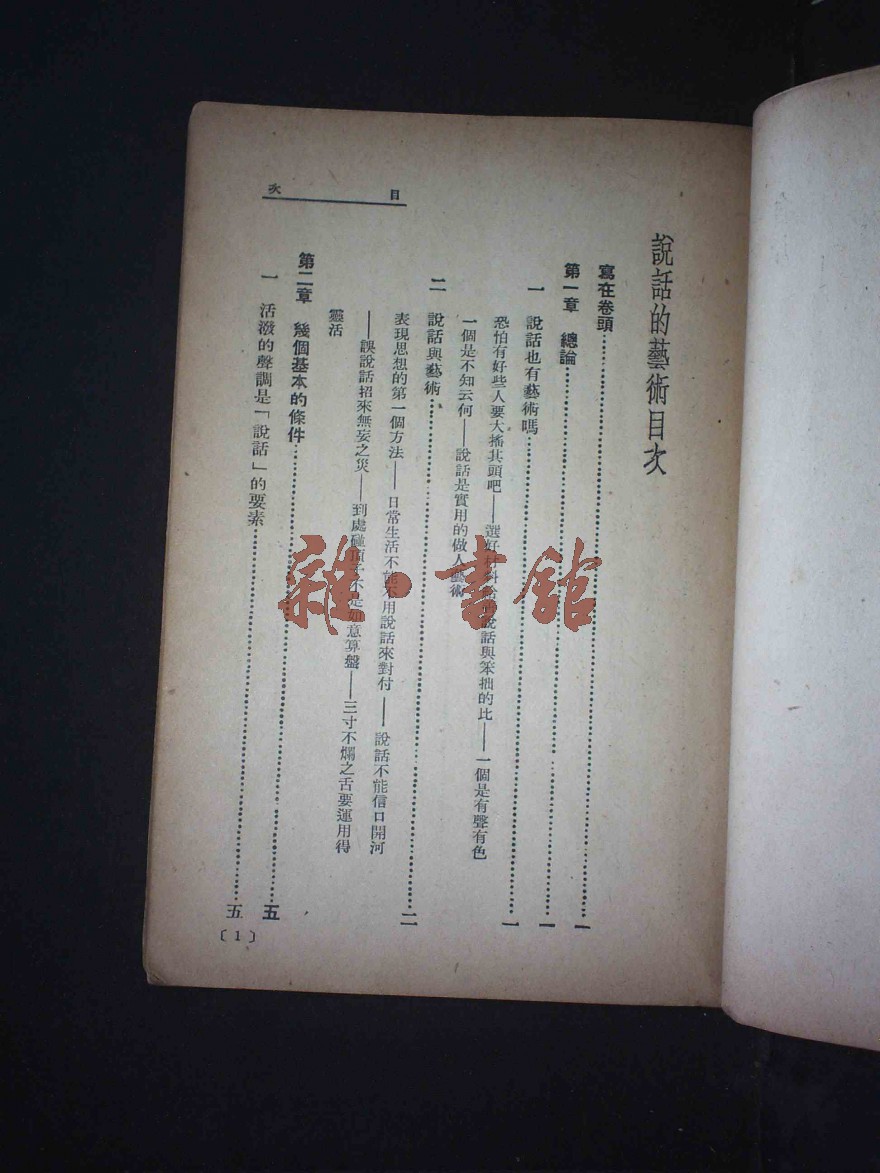 說話的藝術目次
寫在卷頭…………一
第一章 總論…………一
一 說話也有藝術嗎…………一
恐怕有好些人要大搖其頭吧——選好材料 說話與笨拙的比——一個是有聲有色
一個是不知云何——說話是實用的做人藝術
二 說話與藝術…………二
表現思想的第一個方法——日常生活不能不用說話來對付——說話不能信口開河
——誤說話招來無妄之災——到處碰頂子不是如意算盤——三寸不爛之舌要運用得
靈活
第二章 幾個基本的條件…………五
一 活潑的聲調是「說話」的要素…………五
目次
〔1〕
雜·書館